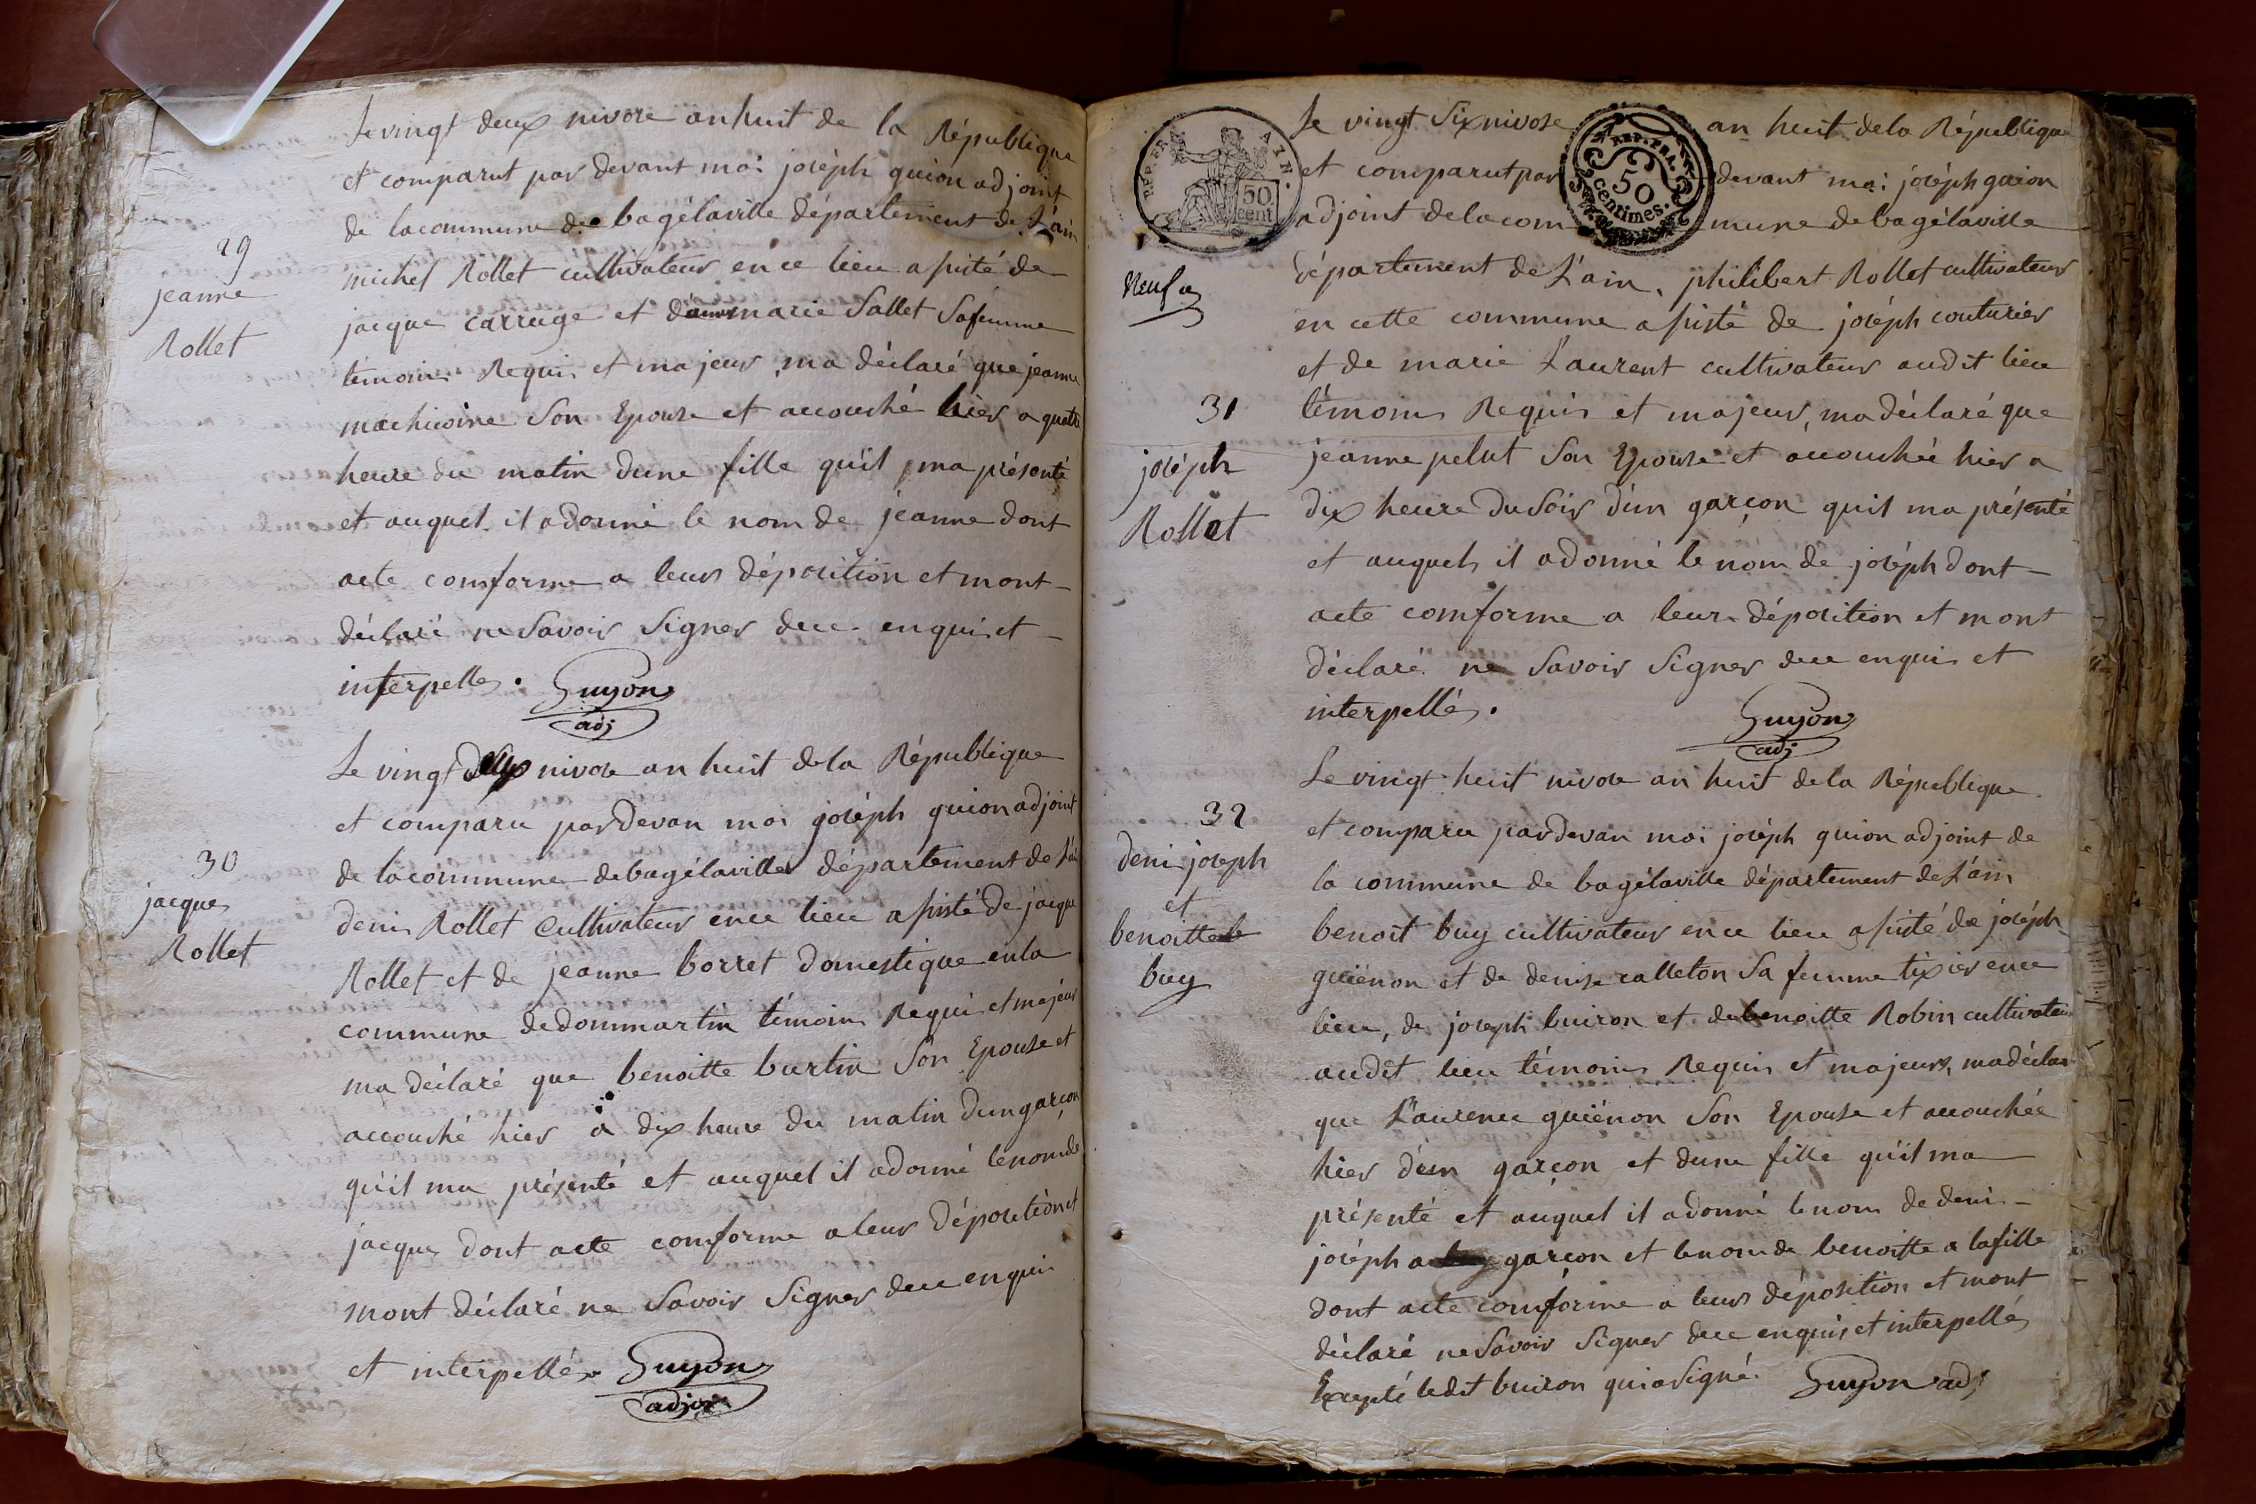 Le vingt deux nivose an huit de la République
et comparut par devant moi joséph guion adjoint
de lacommune de bagélaville département de L'ain
29
jeanne
Rollet
michel Rollet cultivateur en ce lieu asisté de
jacque carruge et d'annemarie Sallet Safemme
témoins Requis et majeur, ma déclaré que jeanne
machicoine Son Epouse et accouché hier a quatre
heure du matin dune fille qu'il ma présenté
et auquel il adonné le nom de jeanne dont
acte comforme a leur déposition et mont
déclaré ne Savoir Signer de ce enquis et
interpellés. Guyon
adj
Le vingt deux nivose an huit dela République
et comparu pardevan moi joséph guion adjoint
de lacommune debagélaville département de L'ain
30
jacque
Rollet
deni Rollet Cultivateur ence lieu asisté de jacque
Rollet et de jeanne borret domestique enla
commune dedommartin témoins Requis et majeur
ma déclaré que benoitte burtin Son Epouse et
accouché hier à dix heure du matin dun garçon
qu'il ma présenté et auquel il adonné lenomde
jacque dont acte comforme aleur déposition et
mont déclaré ne Savoir Signer dece enquis
et interpellés. Guyon
adjoi
REP. FRA
AIN.
50
cent
REP. FRA.
50
centimes.
Le vingt Six nivose an huit dela République
et comparut par devant moi joséph guion
adjoint delacommune debagélaville
Neuf
département de L'ain, philibert Rollet cultivateur
en cette commune asisté de joséph couturier
et de marie Laurent cultivateur audit lieu
31
joséph
Rollet
témoins Requis et majeur, ma déclaré que
jeanne pelut Son Epouse et accouchée hier a
dix heure du Soir d'un garçon quil ma présenté
et auquel il adonné le nom de joséph dont
acte comforme a leur déposition et mont
déclaré ne Savoir Signer dece enquis et
interpellés.
Guyon
adj
Le vingt huit nivose an huit de la République
et comparu pardevan moi joséph guion adjoint de
la commune de bagélaville département de L'ain
32
deni joseph
et
benoitte
buy
benoit buy cultivateur ence lieu asisté de joséph
guiénon et de denise calleton Sa femme tixier ence
lieu, de joseph buiron et debenoitte Robin cultivateur
audit lieu témoins Requis et majeurs, madéclar
que Laurence guiénon Son Epouse et accouchée
hier d'un garçon et dune fille qu'il ma
présenté et auquel il adonné lenom de deni
joséph a garçon et lenomde benoitte a lafille
dont acte comforme a leur déposition et mont
déclaré ne Savoir Signer dece enquis et interpellés
Excepté ledit buiron qui aSigné. Guyon adj